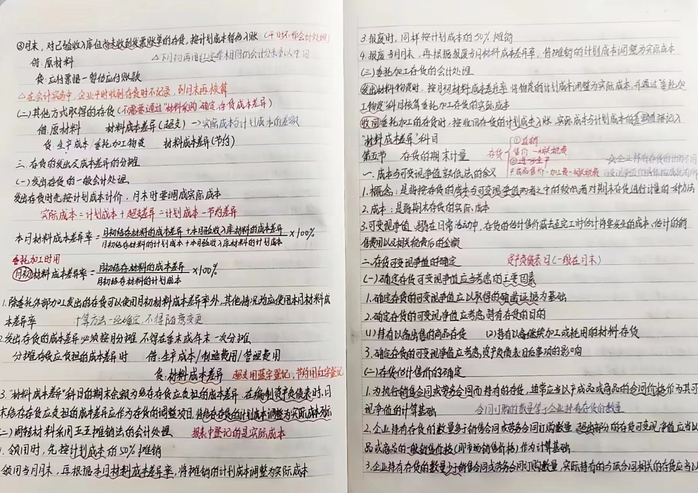 ④月末，对已验收入库但尚未收到发票账单的存货，按计划成本暂估入账（平时不作会计处理）
借：原材料
贷：应付票据—暂估应付账款
△在会计实务中，企业平时收到存货时不记录，到月末再核算
(二)其他方式取得的存货（不需要通过"材料采购"确定存货成本差异）
借：原材料 材料成本差异（超支） → 实际成本与计划成本的差额
贷：生产成本 委托加工物资 材料成本差异（节约）
三、存货的发出及成本差异的分摊
(一)发出存货的一般会计处理
发出存货时先按计划成本计价，月末时要调成实际成本
实际成本=计划成本+超支差异=计划成本-节约差异
本月材料成本差异率=月初结存材料的成本差异+本月验收入库材料的成本差异/月初结存材料的计划成本+本月验收入库材料的计划成本×100%
委托加工时用
月初材料成本差异率=月初结存材料的成本差异/月初结存材料的计划成本×100%
1.除委托外部加工发出的存货可以使用月初材料成本差异率外，其他情况均应使用本月材料成
本差异率 计算方法一经确定，不得随意变更
2.发出存货的成本差异必须按月分摊，不得在季末或年末一次分摊
分摊存货应负担的成本差异时 借：生产成本/制造费用/管理费用
贷：材料成本差异 超支用蓝字登记，节约用红字登记
3."材料成本差异"科目的期末余额为结存存货应负担的成本差异，在编制资产负债表时，月
末结存存货应负担的成本差异应作为存货的调整项目，将结存存货的计划成本调整为实际成本列示
(二)周转材料采用五五摊销法的会计处理 报表中登记的是实际成本
1.领用时，先按计划成本的50%摊销
领用当月月末，再根据本月材料成本差异率，将摊销的计划成本调整为实际成本
3.报废时，同样按计划成本的50%摊销
4.报废当月月末，再根据报废当月材料成本差异率，将摊销的计划成本调整为实际成本
(三)委托加工存货的会计处理
发出材料物资时，按月初材料成本差异率，将物资的计划成本调整为实际成本，并通过"委托加
工物资"科目核算委托加工存货的实际成本
收回委托加工的存货时，按收回存货的计划成本入账，实际成本与计划成本的差额转入
"材料成本差异"科目
第五节 存货的期末计量
一、成本与可变现净值孰低法的含义
1.概念：是指按存货的成本与可变现净值两者之中的较低者对期末存货进行计量的一种方法
2.成本：是指期末存货的实际成本
3.可变现净值：是指在日常活动中，存货的估计售价减去至完工时估计将要发生的成本、估计的销
售费用以及相关税费后的金额
二、存货可变现净值的确定 资产负债表日（一般在月末）
(一)确定存货可变现净值应当考虑的主要因素
1.确定存货的可变现净值应以取得的确凿证据为基础
2.确定存货的可变现净值应考虑持有存货的目的
(1)持有以备出售的商品存货 (2)持有以备继续加工或耗用的材料存货
3.确定存货的可变现净值应考虑资产负债表日后事项的影响
(二)存货估计售价的确定
1.为执行销售合同或劳务合同而持有的存货，通常应当以产成品或商品的合同价格作为其可
变现净值的计算基础 合同订购的数量等于企业持有存货的数量
2.企业持有存货的数量多于销售合同或劳务合同订购数量，超出部分的存货可变现净值应当以
品或商品的一般销售价格（即市场销售价格）作为计算基础
3.企业持有存货的数量少于销售合同或劳务合同订购数量，实际持有的与该合同相关的存货应当以